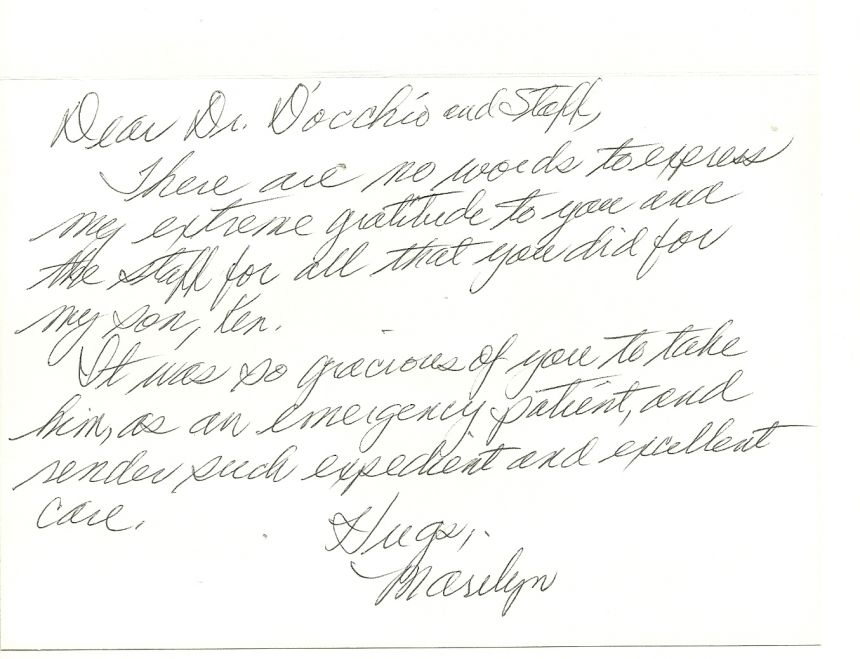 Dear Dr. D'occhio and Staff,
There are no words to express
my extreme gratitude to you and
the staff for all that you did for
my son, Ken.
It was so gracious of you to take
him, as an emergency patient, and
render such expedient and excellent
care.
Hugs,
Marilyn